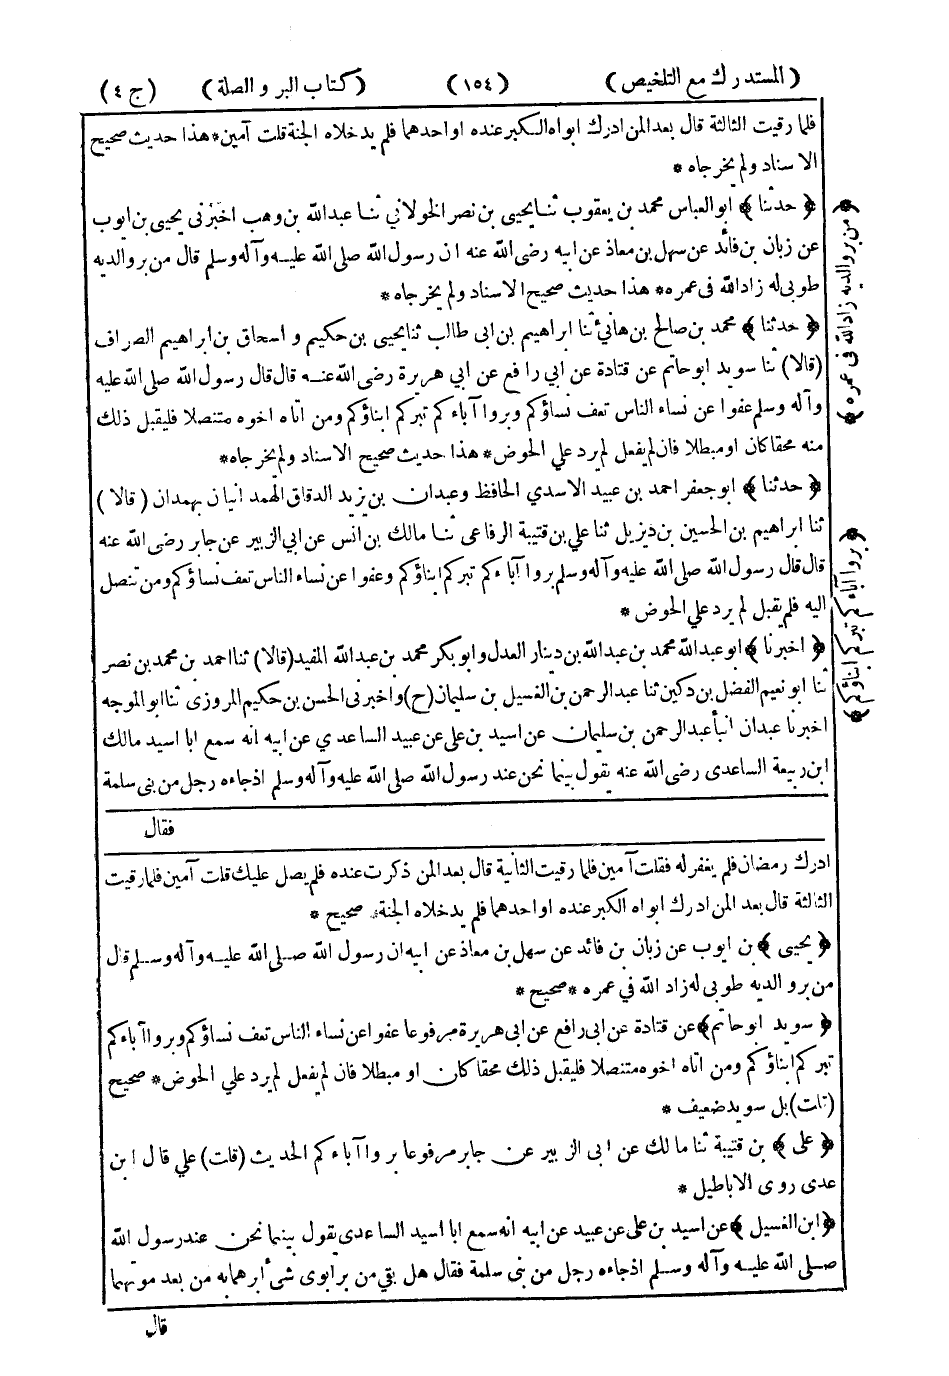 (المستدرك مع التلخيص) (١٥٤) (كتاب البر والصلة) (ج ٤)
فلما رقيت الثالثة قال بعد المن ادرك ابواه الكبر عنده او احدهما فلم يدخلاه الجنة قلت آمين * هذا حديث صحيح
الاسناد ولم يخرجاه *
﴿ حدثنا ﴾ ابو العباس محمد بن يعقوب ثنا يحيى بن نصر الخولاني ثنا عبد الله بن وهب اخبرنى يحيى بن ايوب
عن زبان بن فائد عن سهل بن معاذ عن ابيه رضى الله عنه ان رسول الله صلى الله عليه وآله وسلم قال من بر والديه
طوبى له زاد الله فى عمره * هذا حديث صحيح الاسناد ولم يخرجاه *
﴿ حدثنا ﴾ محمد بن صالح بن هانئ ثنا ابراهيم بن ابى طالب ثنا يحيى بن حكيم و اسحاق بن ابراهيم الصراف
(قالا) ثنا سويد ابو حاتم عن قتادة عن ابي رافع عن ابي هريرة رضى الله عنه قال قال رسول الله صلى الله عليه
وآله وسلم عفوا عن نساء الناس تعف نساؤكم وبروا آباءكم تبركم ابناؤكم ومن اتاه اخوه متنصلا فليقبل ذلك
منه محقا كان او مبطلا فان لم يفعل لم يرد علي الحوض * هذا حديث صحيح الاسناد ولم يخرجاه *
﴿ حدثنا ﴾ ابو جعفر احمد بن عبيد الاسدي الحافظ وعبدان بن يزيد الدقاق الهمدانيان بهمدان (قالا)
ثنا ابراهيم بن الحسين بن ديزيل ثنا علي بن قتيبة الرفاعى ثنا مالك بن انس عن ابي الزبير عن جابر رضى الله عنه
قال قال رسول الله صلى الله عليه وآله وسلم بروا آباءكم تبركم ابناؤكم وعفوا عن نساء الناس تعف نساؤكم ومن تنصل
اليه فلم يقبل لم يرد علي الحوض *
﴿ اخبرنا ﴾ ابو عبد الله محمد بن عبد الله بن دينار العدل وابو بكر محمد بن عبد الله المفيد (قالا) ثنا احمد بن محمد بن نصر
ثنا ابو نعيم الفضل بن دكين ثنا عبد الرحمن بن الغسيل بن سليمان (ح) واخبرنى الحسن بن حكيم المروزى ثنا ابو الموجه
اخبرنا عبدان انبأ عبد الرحمن بن سليمان عن اسيد بن على عن عبيد الساعدي عن ابيه انه سمع ابا اسيد مالك
ابن ربيعة الساعدى رضى الله عنه يقول بينما نحن عند رسول الله صلى الله عليه وآله وسلم اذ جاءه رجل من بنى سلمة
فقال
﴿ من بر والديه زاد الله فى عمره ﴾
﴿ بروا آباءكم تبركم ابناؤكم ﴾
ادرك رمضان فلم يغفر له فقلت آمين فلما رقيت الثانية قال بعد المن ذكرت عنده فلم يصل عليك قلت آمين فلما رقيت
الثالثة قال بعد المن ادرك ابواه الكبر عنده او احدهما فلم يدخلاه الجنة * صحيح *
﴿ يحيى ﴾ بن ايوب عن زبان بن فائد عن سهل بن معاذ عن ابيه ان رسول الله صلى الله عليه وآله وسلم قال
من بر والديه طوبى له زاد الله في عمره * صحيح *
﴿ سويد ابو حاتم ﴾ عن قتادة عن ابى رافع عن ابى هريرة مرفوعا عفوا عن نساء الناس تعف نساؤكم وبروا آباءكم
تبركم ابناؤكم ومن اتاه اخوه متنصلا فليقبل ذلك محقا كان او مبطلا فان لم يفعل لم يرد علي الحوض * صحيح
(قلت) بل سويد ضعيف *
﴿ على ﴾ بن قتيبة ثنا مالك عن ابى الزبير عن جابر مرفوعا بروا آباءكم الحديث (قلت) علي قال ابن
عدى روى الاباطيل *
﴿ ابن الغسيل ﴾ عن اسيد بن على عن عبيد عن ابيه انه سمع ابا اسيد الساعدى يقول بينما نحن عند رسول الله
صلى الله عليه وآله وسلم اذ جاءه رجل من بنى سلمة فقال هل بقي من بر ابوى شئ أبرهما به من بعد موتهما
قال